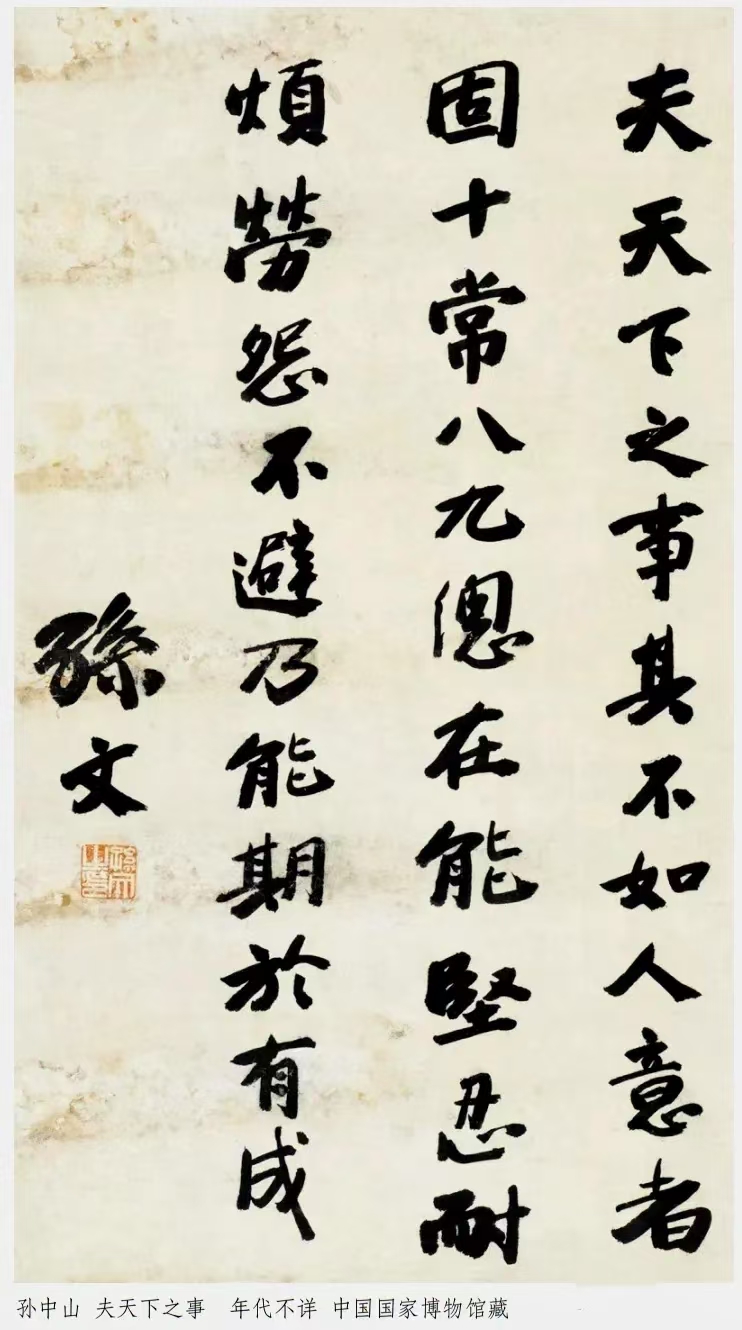 夫天下之事其不如人意者
固十常八九總在能堅忍耐
煩勞怨不避乃能期於有成
孫文
孫文之印
孙中山 夫天下之事 年代不详 中国国家博物馆藏